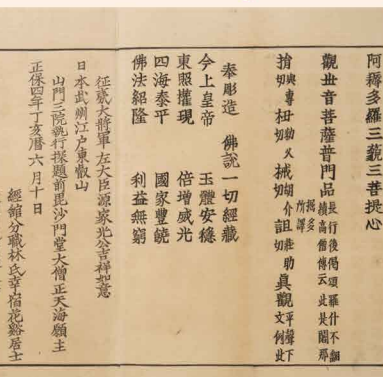 阿耨多羅三藐三菩提心
觀世音菩薩普門品
長行後偈頌羅什不翻
續高僧傳云此是闍那
掘多
所譯
揹與專切
杻勑久切
械胡介切
詛莊助切
眞觀平聲下文例此
奉彫造 佛說一切經藏
今上皇帝 玉體安穩
東照權現 倍增威光
四海泰平 國家豐饒
佛法紹隆 利益無窮
征夷大將軍左大臣源家光公吉祥如意
日本武州江戶東叡山
山門三院執行探題前毘沙門堂大僧正天海願主
正保四年丁亥曆六月十日
經館分職林氏幸宿花谿居士